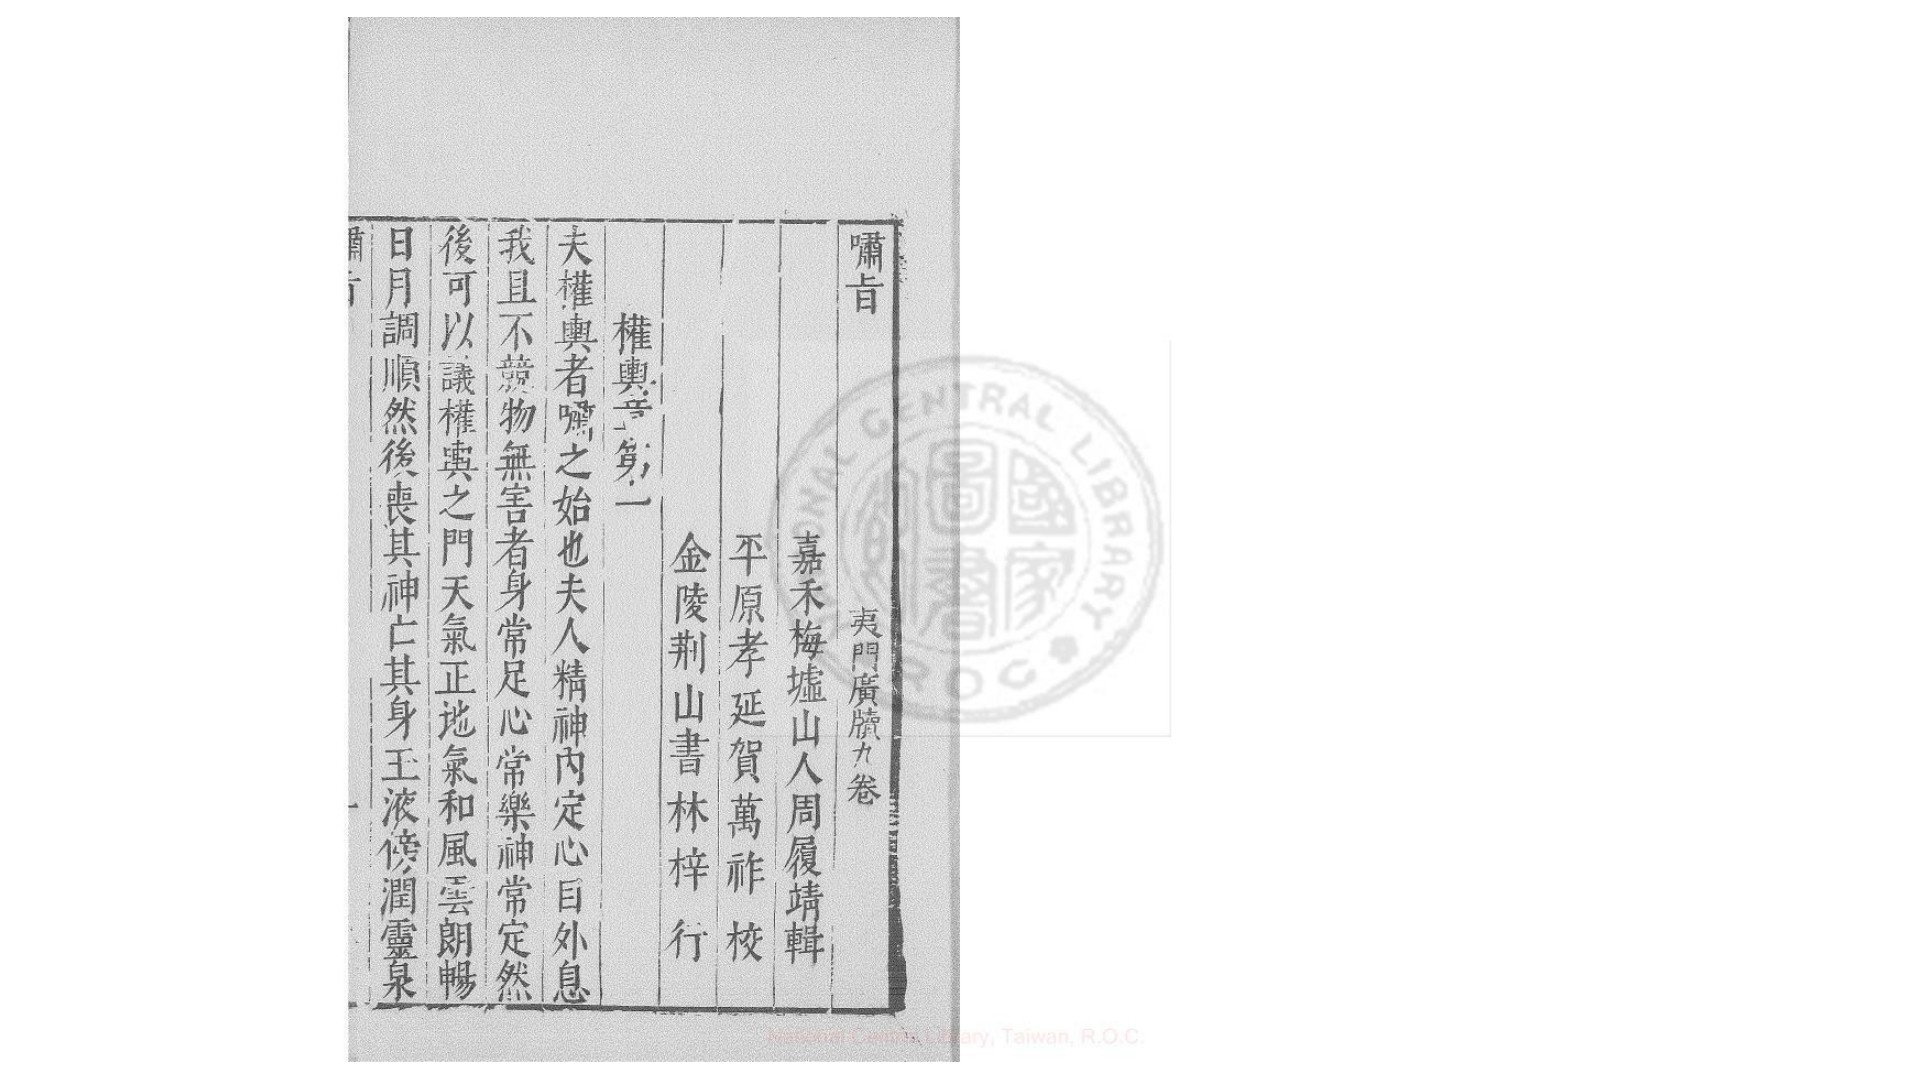 嘯旨　夷門廣牘九卷
嘉禾梅墟山人周履靖輯
平原孝延賀萬祚校
金陵荆山書林梓行
權輿章第一
夫權輿者嘯之始也夫人精神内定心目外息
我且不競物無害者身常足心常樂神常定然
後可以議權輿之門天氣正地氣和風雲朗暢
日月調順然後喪其神亡其身玉液傍潤靈泉
嘯旨
一
NATIONAL CENTRAL LIBRARY R O C
國家圖書館
National Central Library, Taiwan, R.O.C.